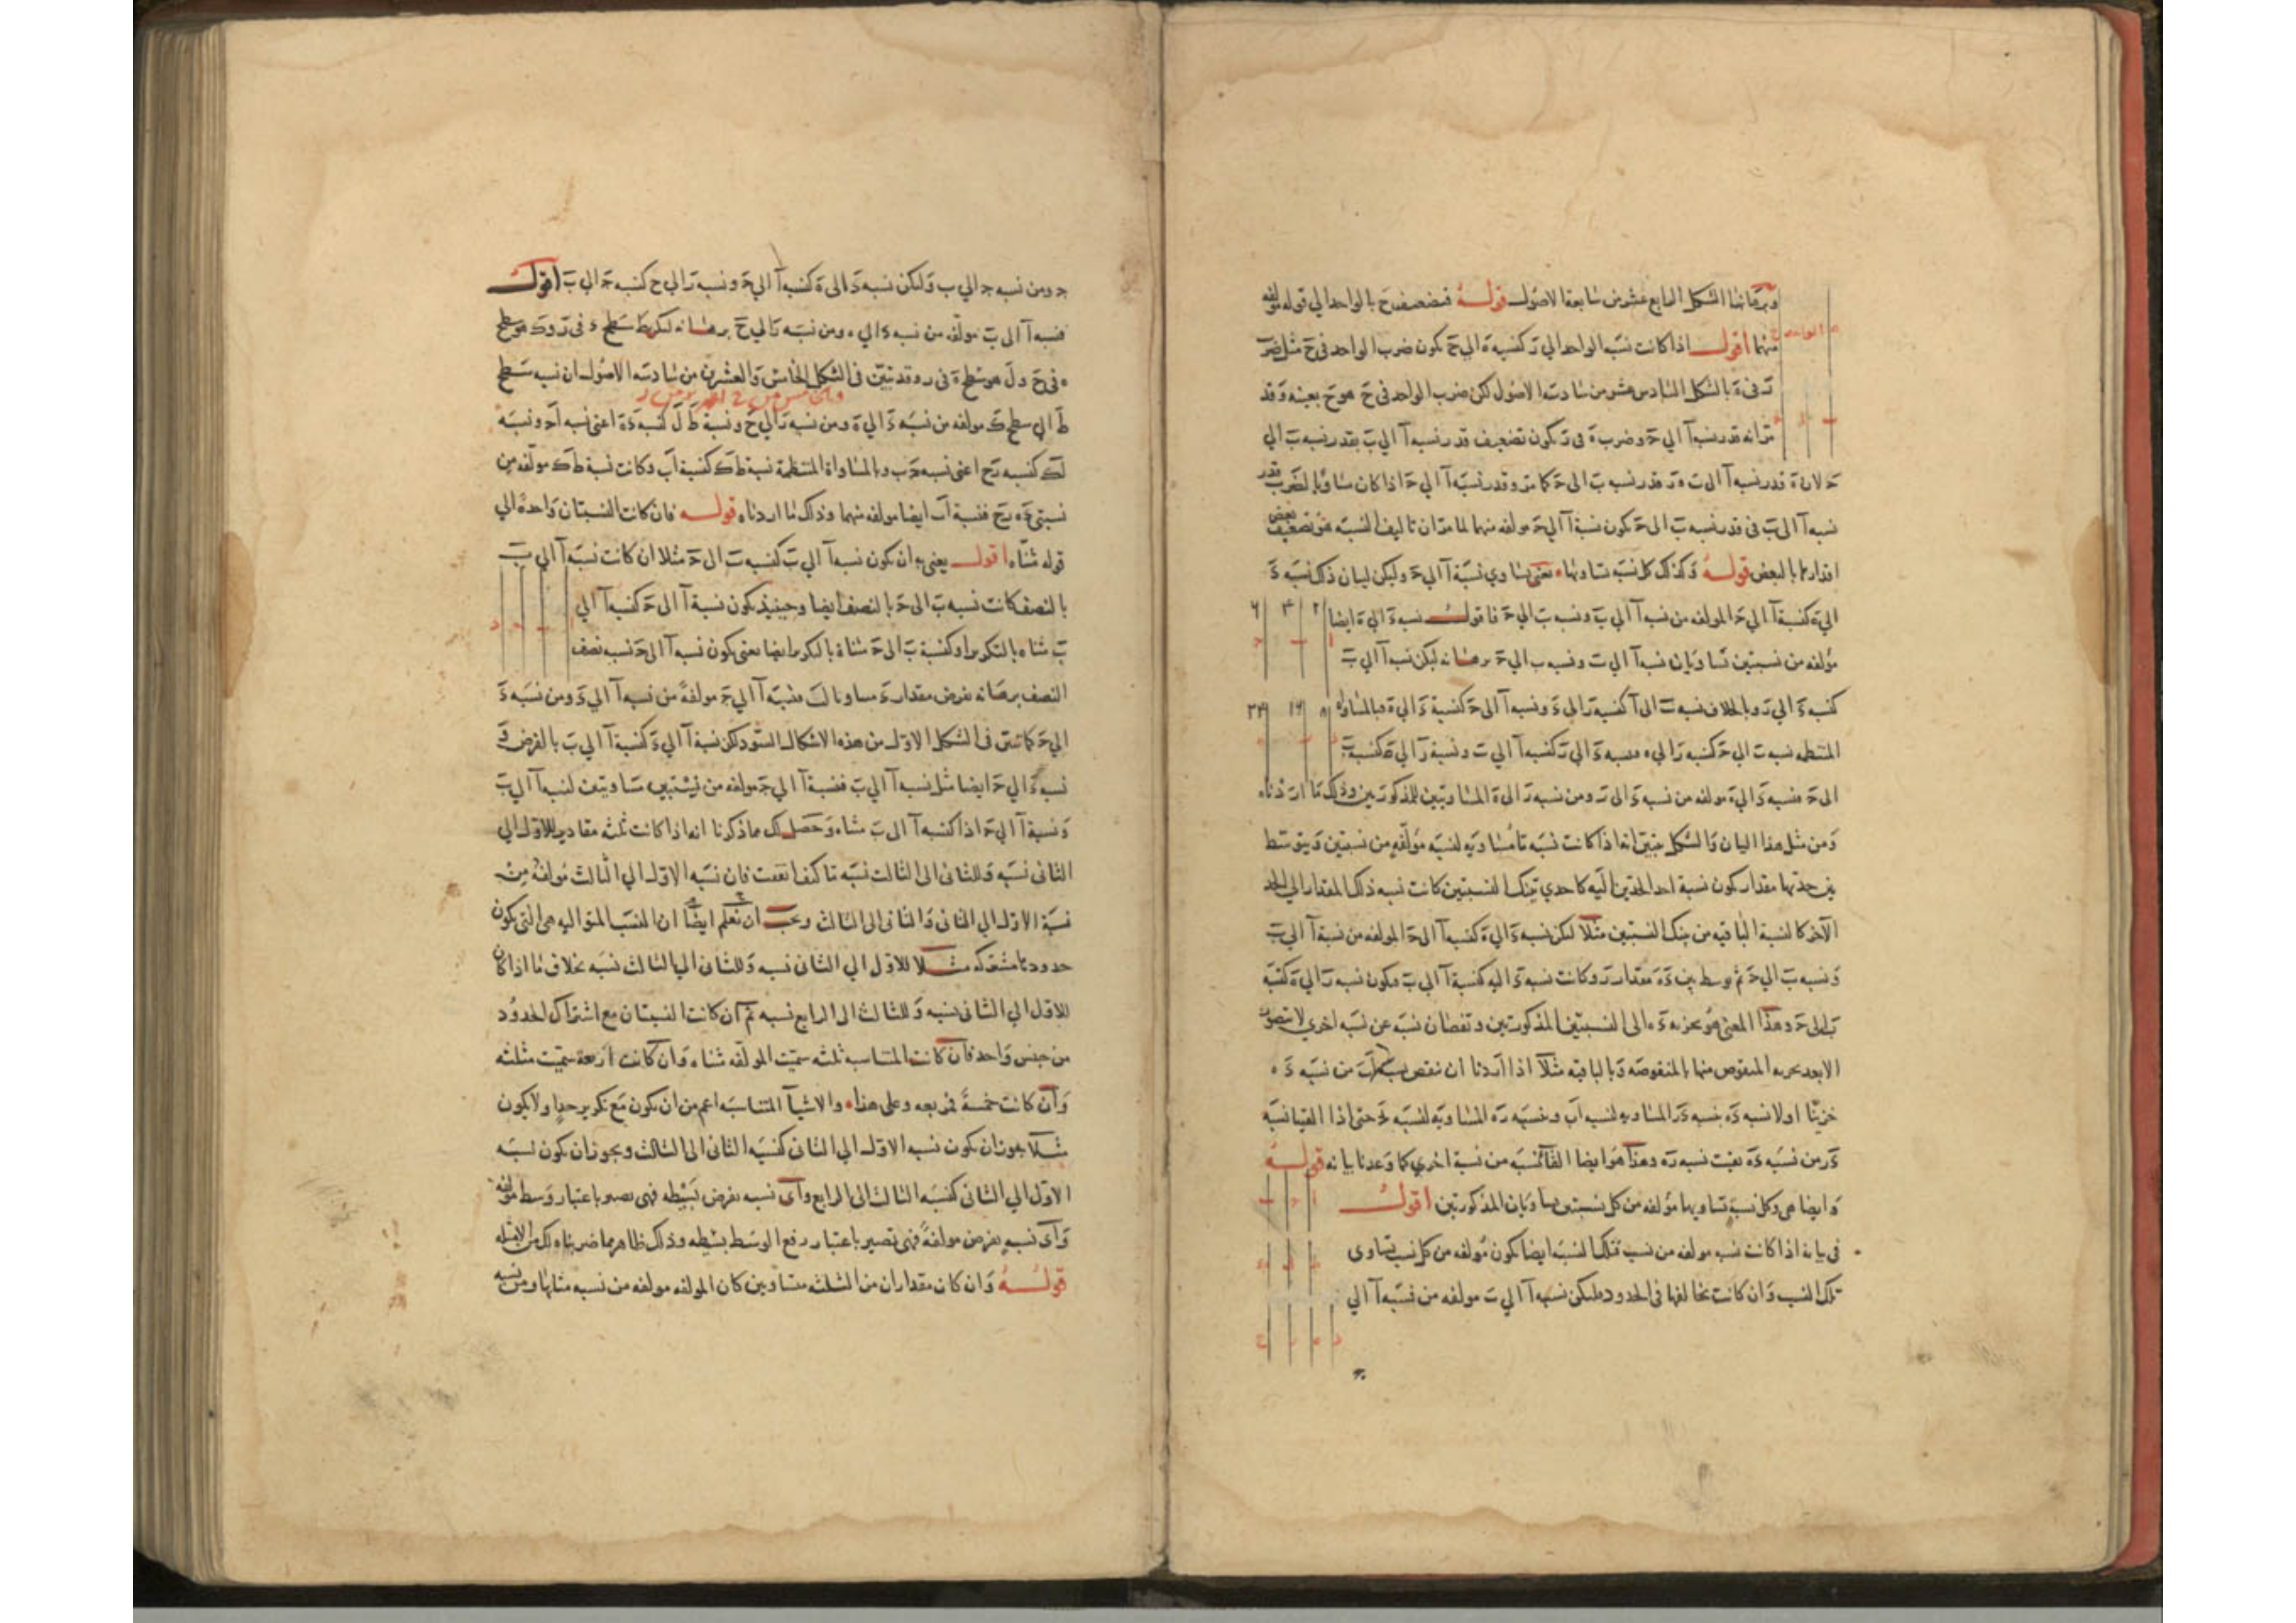 وبرهانها الشكل السابع عشر من سابعة الاصول قوله فنضعف ح بالواحد الي قوله مولفة
منهما اقول اذا كانت نسبة الواحد الي ز كنسبة ه الي ح يكون ضرب الواحد في ح مثل ضرب
ز في ه بالشكل السادس عشر من سادسة الاصول لكن ضرب الواحد في ح هو ح بعينه وقد
مر انه قدر نسبة آ الي ج وضرب ه في ز يكون تضعيف قدر نسبة آ الي ب بقدر نسبة ب الي
ج لان ه قدر نسبة آ الي ب و ز قدر نسبة ب الي ج كما مر وقدر نسبة آ الي ج اذا كان مساويا لضرب قدر
نسبة آ الي ب في قدر نسبة ب الي ج يكون نسبة آ الي ج مولفة منهما لما مر ان تاليف النسبة هو تضعيف بعض
اقدارها بالبعض قوله وكذلك كل نسبة تساويها يعني يساوي نسبة آ الي ج وليكن لبيان ذلك نسبة د
الي ه كنسبة آ الي ج المولفة من نسبة آ الي ب ونسبة ب الي ج فاقول نسبة د الي ه ايضا
مولفة من نسبتين تساويان نسبة آ الي ب ونسبة ب الي ج برهانه ليكن نسبة آ الي ب
كنسبة د الي ز وبالخلاف نسبة ب الي آ كنسبة ز الي د ونسبة آ الي ج كنسبة د الي ه فبالمساواة
المنتظمة نسبة ب الي ج كنسبة ز الي ه فنسبة د الي ز كنسبة آ الي ب ونسبة ز الي ه كنسبة ب
الي ج فنسبة د الي ه مولفة من نسبة د الي ز ومن نسبة ز الي ه المساويتين للمذكورتين وذلك ما اردناه
ومن مثل هذا البيان والشكل يتبين انه اذا كانت نسبة ما مساوية لنسبة مولفة من نسبتين ويتوسط
بين حديها مقدار يكون نسبة احد الحدين اليه كاحدي تينك النسبتين كانت نسبة ذلك المقدار الي الحد
الآخر كالنسبة الباقية من تينك النسبتين مثلا ليكن نسبة د الي ه كنسبة آ الي ج المولفة من نسبة آ الي ب
ونسبة ب الي ج ثم توسط بين د ه مقدار ز وكانت نسبة د اليه كنسبة آ الي ب فيكون نسبة ز الي ه كنسبة
ب الي ج وهذا المعني هو تجزية د ه الي النسبتين المذكورتين ونقصان نسبة عن نسبة اخري لا يتصور
الا بعد تجزية المنقوص منها بالمنقوصة وبالباقية مثلا اذا اردنا ان ننقص نسبة آب من نسبة د ه
جزينا اولا نسبة د ه بنسبة د ز المساوية لنسبة آب وبنسبة ز ه المساوية لنسبة ب ج حتي اذا القينا نسبة
د ز من نسبة د ه بقيت نسبة ز ه وهذا هو ايضا القاء نسبة من نسبة اخري كما وعدنا بيانه قوله
وايضا هي وكل نسبة تساويها مولفة من كل نسبتين يساويان المذكورتين اقول
في بيانه اذا كانت نسبة مولفة من نسب فتلك النسبة ايضا يكون مولفة من كل نسب يساوي
تلك النسب وان كانت تخالفها في الحدود فليكن نسبة آ الي ب مولفة من نسبة آ الي
ج ومن نسبة ج الي ب وليكن نسبة د الي ه كنسبة آ الي ج ونسبة ز الي ح كنسبة ج الي ب اقول
فنسبة آ الي ب مولفة من نسبة د الي ه ومن نسبة ز الي ح برهانه ليكن ط سطح د في ز و ك هو سطح
ه في ح و ل هو سطح ه في ز وقد تبين في الشكل الخامس والعشرين من سادسة الاصول ان نسبة سطح
ط الي سطح ك مولفة من نسبة د الي ه ومن نسبة ز الي ح ونسبة ط ل كنسبة د ه اعني نسبة آ ج ونسبة
ل ك كنسبة ز ح اعني نسبة ج ب وبالمساواة المنتظمة نسبة ط ك كنسبة آب وكانت نسبة ط ك مولفة من
نسبتي د ه ز ح فنسبة آب ايضا مولفة منهما وذلك ما اردناه قوله فان كانت النسبتان واحدة الي
قوله مثناة اقول يعني به ان يكون نسبة آ الي ب كنسبة ب الي ج مثلا ان كانت نسبة آ الي ب
بالنصف كانت نسبة ب الي ج بالنصف ايضا وحينيذ يكون نسبة آ الي ج كنسبة آ الي
ب مثناة بالتكرير او كنسبة ب الي ج مثناة بالتكرير ايضا يعني يكون نسبة آ الي ج نسبة نصف
النصف برهانه نفرض مقدار د مساويا لـ ب فنسبة آ الي ج مولفة من نسبة آ الي د ومن نسبة د
الي ج كما تبين في الشكل الاول من هذه الاشكال الستة ولكن نسبة آ الي د كنسبة آ الي ب بالفرض و
نسبة د الي ج ايضا مثل نسبة آ الي ب فنسبة آ الي ج مولفة من نسبتين متساويتين لنسبة آ الي ب
ونسبة آ الي ج اذا كنسبة آ الي ب مثناة وحصل لك مما ذكرنا انه اذا كانت ثلثة مقادير للاول الي
الثاني نسبة وللثاني الي الثالث نسبة ما كيف اتفقت فان نسبة الاول الي الثالث مولفة من
نسبة الاول الي الثاني والثاني الي الثالث ويجب ان تعلم ايضا ان النسب المتوالية هي التي يكون
حدودها مشتركة مثلا للاول الي الثاني نسبة وللثاني الي الثالث نسبة بخلاف ما اذا كان
للاول الي الثاني نسبة وللثالث الي الرابع نسبة ثم ان كانت النسبتان مع اشتراك الحدود
من جنس واحد فان كانت المتناسبة ثلثة سميت المولفة مثناة وان كانت اربعة سميت مثلثة
وان كانت خمسة فمربعة وعلي هذا والاشيآ المتناسبة اعم من ان يكون مع تكرير حد او لا يكون
مثلا يجوز ان يكون نسبة الاول الي الثاني كنسبة الثاني الي الثالث ويجوز ان يكون نسبة
الاول الي الثاني كنسبة الثالث الي الرابع واي نسبة نفرض بسيطة فهي تصير باعتبار وسط مولفة
واي نسبة نفرض مولفة فهي تصير باعتبار رفع الوسط بسيطة وذلك ظاهر مما ضربناه لك من الامثلة
قوله وان كان مقداران من الثلثة متساويين كان المولفة مولفة من نسبة مثلها ومن نسبة